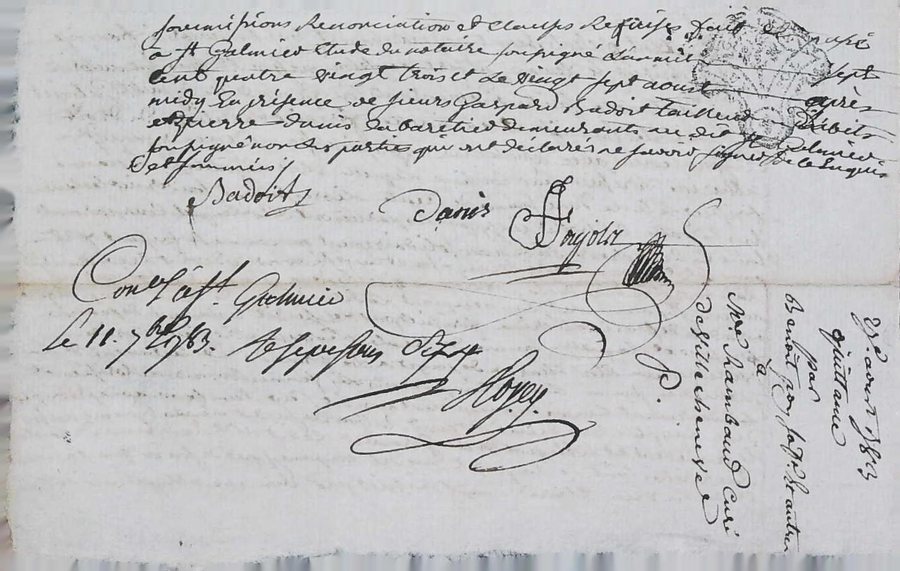 soumissions Renonciation et clauses Requises fait et passé
a st Galmier Etude du notaire soussigné L'an mil sept
cent quatre vingt trois et Le vingt sept aoust après
midy En présence de sieurs Gaspard Badoit tailleur d'habits
et pierre danis cabaretier demeurants au dit st Galmier
soussigné non les parties qui ont déclarés ne savoir signer de ce Enquis
et sommés
Badoit
Danis
Conlé à st. Galmier
Le 11. 7bre 1783.
27e aout 1783
quittance
par
Benoit
a
Mre chambaud Curé
de Villechenève